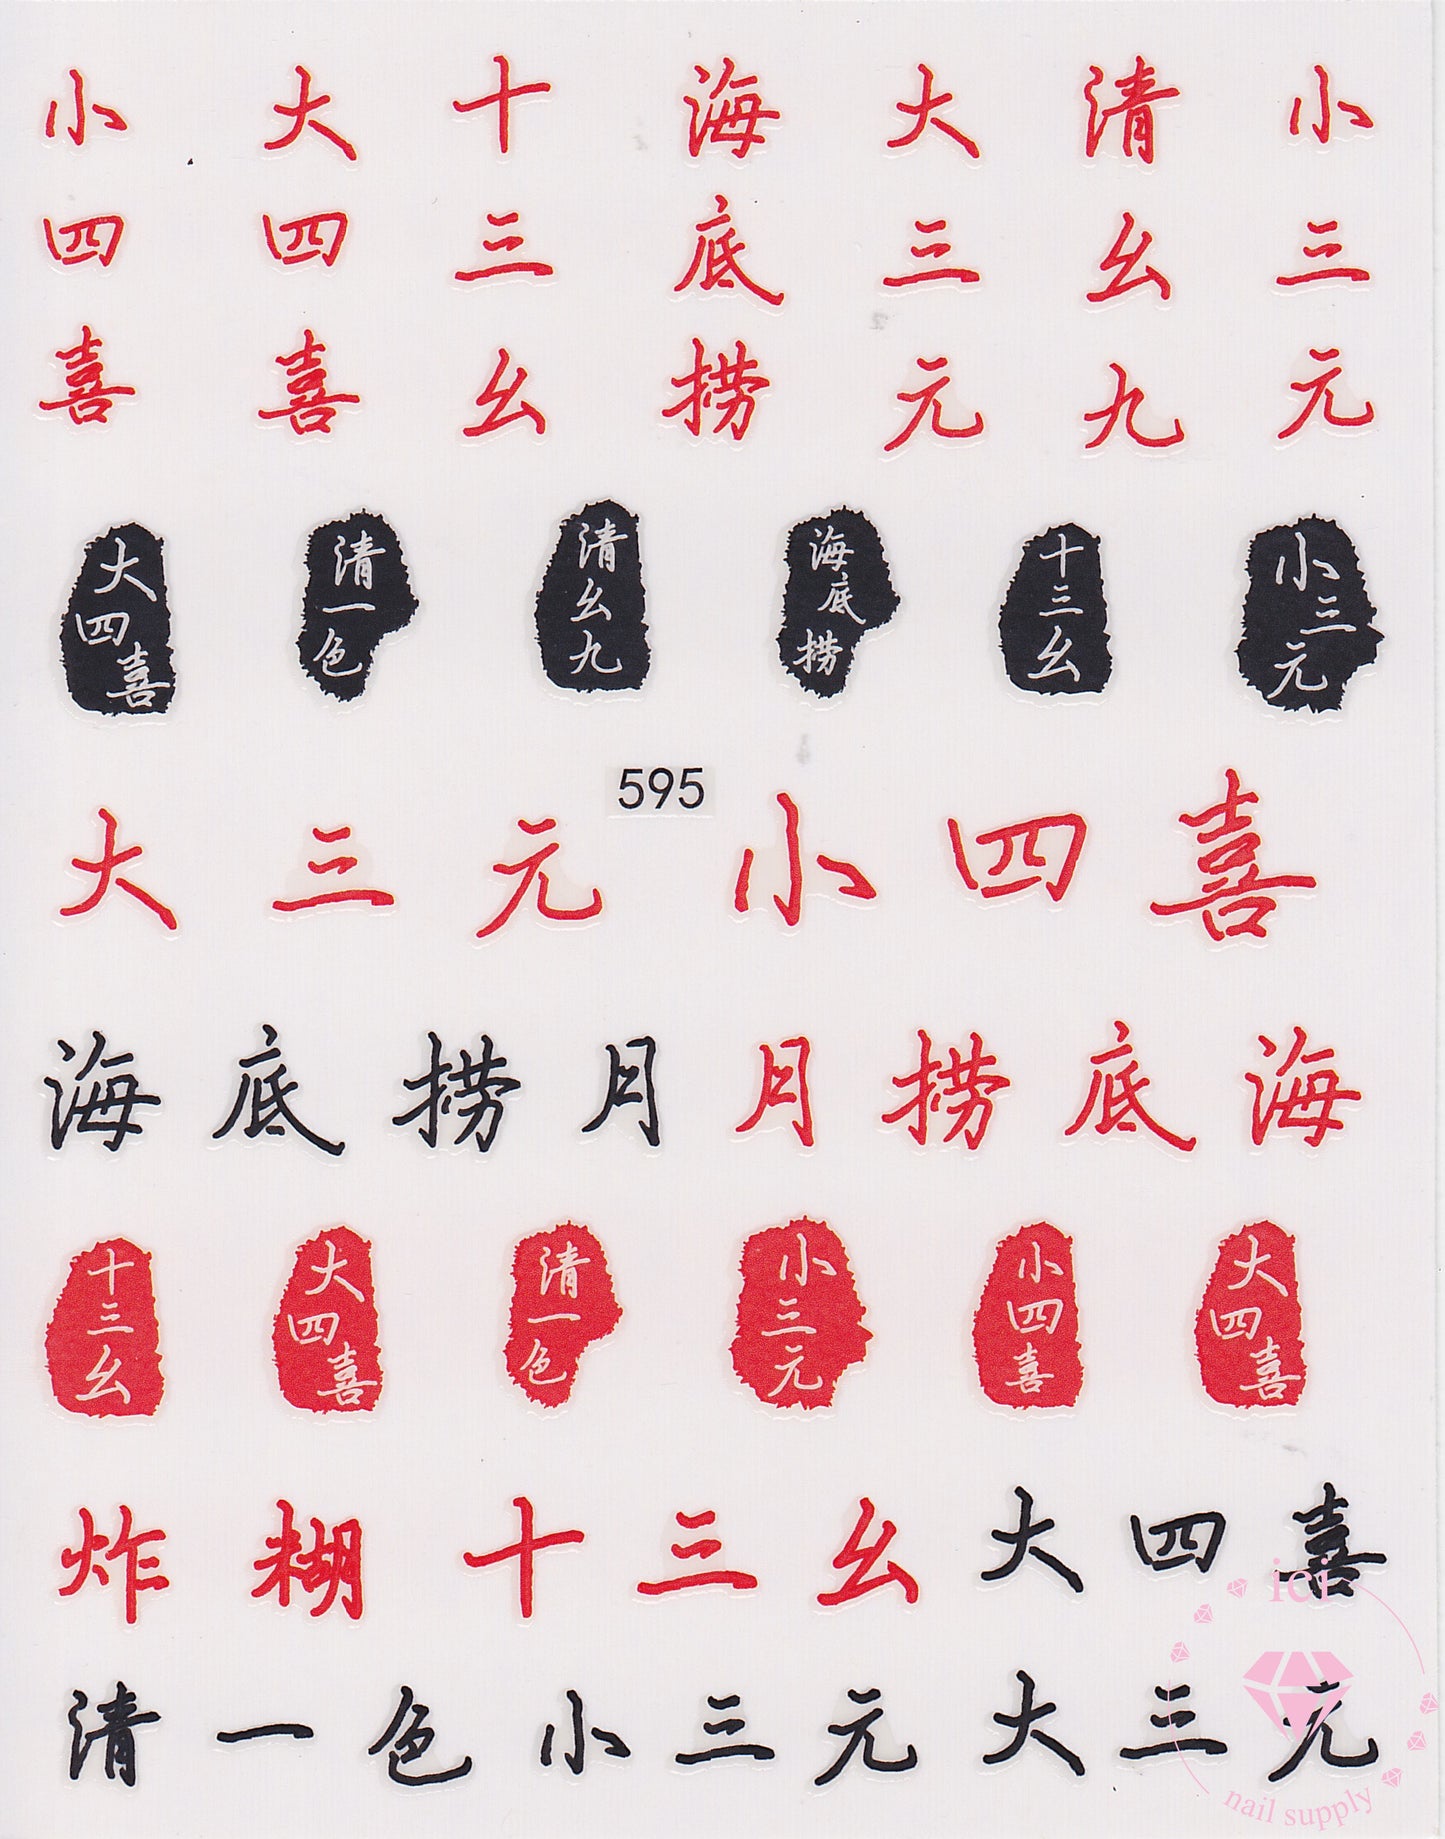 小四喜
大四喜
十三幺
海底捞
大三元
清幺九
小三元
大四喜
清一色
清幺九
海底捞
十三幺
小三元
595
大三元 小四喜
海底捞月 月捞底海
十三幺
大四喜
清一色
小三元
小四喜
大四喜
炸糊 十三幺 大四喜
清一色 小三元 大三元
ici
nail supply